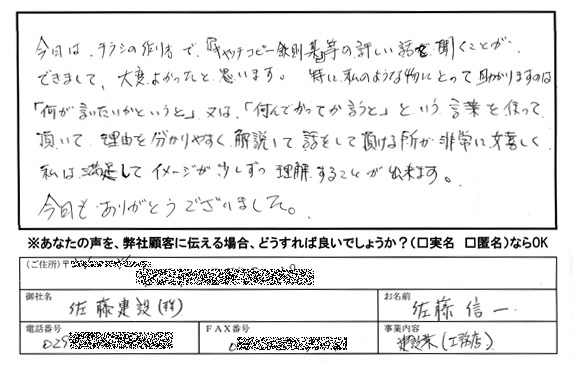 今日は、チラシの作り方で、『キャッチコピー鉄則集』等の詳しい話を聞くことが
できまして、大変よかったと思います。特に私のような物にとって助かりますのは
「何が言いたいかというと」又は、「何んでかってか言うと」という言葉を使って
頂いて、理由を分かりやすく解説して話をして頂ける所が非常に嬉しく
私は満足してイメージが少しずつ理解することが出来ます。
今日もありがとうございました。
※あなたの声を、弊社顧客に伝える場合、どうすれば良いでしょうか？（□実名 □匿名）ならOK
（ご住所）〒
御社名 佐藤建設(株) お名前 佐藤信一
電話番号 029 FAX番号 0 事業内容 建設業(工務店)